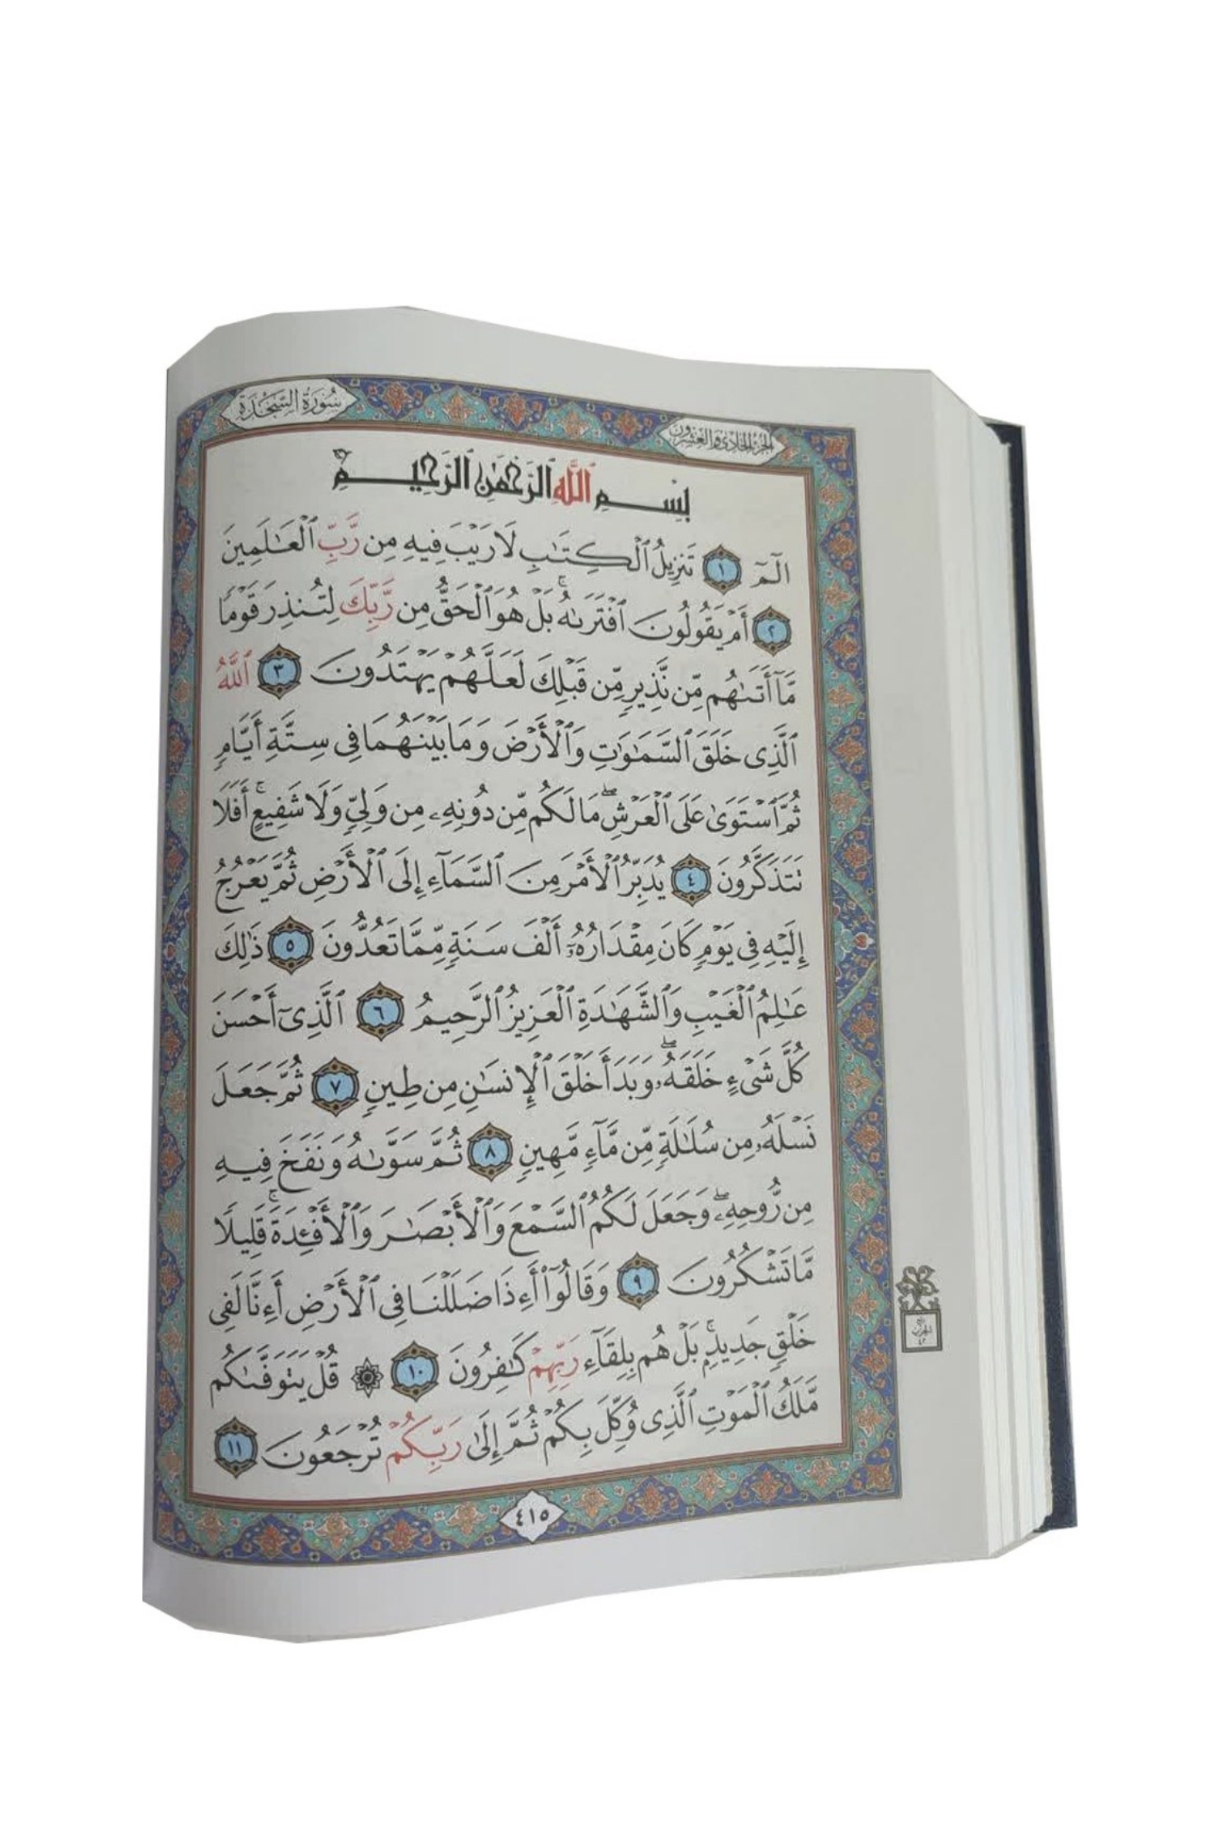 سُورَةُ السَّجْدَةِ
الجزء الحادي والعشرون
بِسْمِ ٱللَّهِ ٱلرَّحْمَٰنِ ٱلرَّحِيمِ
الٓمٓ ١ تَنزِيلُ ٱلْكِتَٰبِ لَا رَيْبَ فِيهِ مِن رَّبِّ ٱلْعَٰلَمِينَ
٢ أَمْ يَقُولُونَ ٱفْتَرَىٰهُ ۚ بَلْ هُوَ ٱلْحَقُّ مِن رَّبِّكَ لِتُنذِرَ قَوْمًا
مَّآ أَتَىٰهُم مِّن نَّذِيرٍ مِّن قَبْلِكَ لَعَلَّهُمْ يَهْتَدُونَ ٣ ٱللَّهُ
ٱلَّذِى خَلَقَ ٱلسَّمَٰوَٰتِ وَٱلْأَرْضَ وَمَا بَيْنَهُمَا فِى سِتَّةِ أَيَّامٍ
ثُمَّ ٱسْتَوَىٰ عَلَى ٱلْعَرْشِ ۖ مَا لَكُم مِّن دُونِهِۦ مِن وَلِىٍّ وَلَا شَفِيعٍ ۚ أَفَلَا
تَتَذَكَّرُونَ ٤ يُدَبِّرُ ٱلْأَمْرَ مِنَ ٱلسَّمَآءِ إِلَى ٱلْأَرْضِ ثُمَّ يَعْرُجُ
إِلَيْهِ فِى يَوْمٍ كَانَ مِقْدَارُهُۥٓ أَلْفَ سَنَةٍ مِّمَّا تَعُدُّونَ ٥ ذَٰلِكَ
عَٰلِمُ ٱلْغَيْبِ وَٱلشَّهَٰدَةِ ٱلْعَزِيزُ ٱلرَّحِيمُ ٦ ٱلَّذِىٓ أَحْسَنَ
كُلَّ شَىْءٍ خَلَقَهُۥ ۖ وَبَدَأَ خَلْقَ ٱلْإِنسَٰنِ مِن طِينٍ ٧ ثُمَّ جَعَلَ
نَسْلَهُۥ مِن سُلَٰلَةٍ مِّن مَّآءٍ مَّهِينٍ ٨ ثُمَّ سَوَّىٰهُ وَنَفَخَ فِيهِ
مِن رُّوحِهِۦ ۖ وَجَعَلَ لَكُمُ ٱلسَّمْعَ وَٱلْأَبْصَٰرَ وَٱلْأَفْـِٔدَةَ ۚ قَلِيلًا
مَّا تَشْكُرُونَ ٩ وَقَالُوٓا۟ أَءِذَا ضَلَلْنَا فِى ٱلْأَرْضِ أَءِنَّا لَفِى
خَلْقٍ جَدِيدٍۭ ۚ بَلْ هُم بِلِقَآءِ رَبِّهِمْ كَٰفِرُونَ ١٠ ۞ قُلْ يَتَوَفَّىٰكُم
مَّلَكُ ٱلْمَوْتِ ٱلَّذِى وُكِّلَ بِكُمْ ثُمَّ إِلَىٰ رَبِّكُمْ تُرْجَعُونَ ١١
٤١٥
الحزب
٤٢